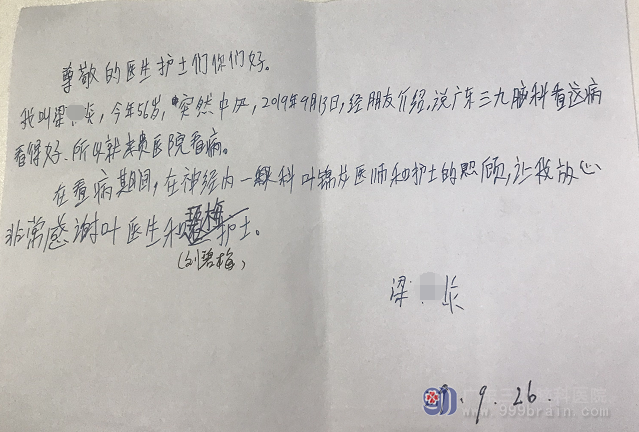 尊敬的医生护士们你们好。
我叫梁 炎,今年56岁,突然中风,2019年9月13日,经朋友介绍,说广东三九脑科看这病
看得好、所以就来贵医院看病。
在看病期间,在神经内一科叶锦龙医师和护士的照顾,让我放心
非常感谢叶医生和碧梅护士。
(刘碧梅)
梁
9.26.
广东三九脑科医院
www.999brain.com